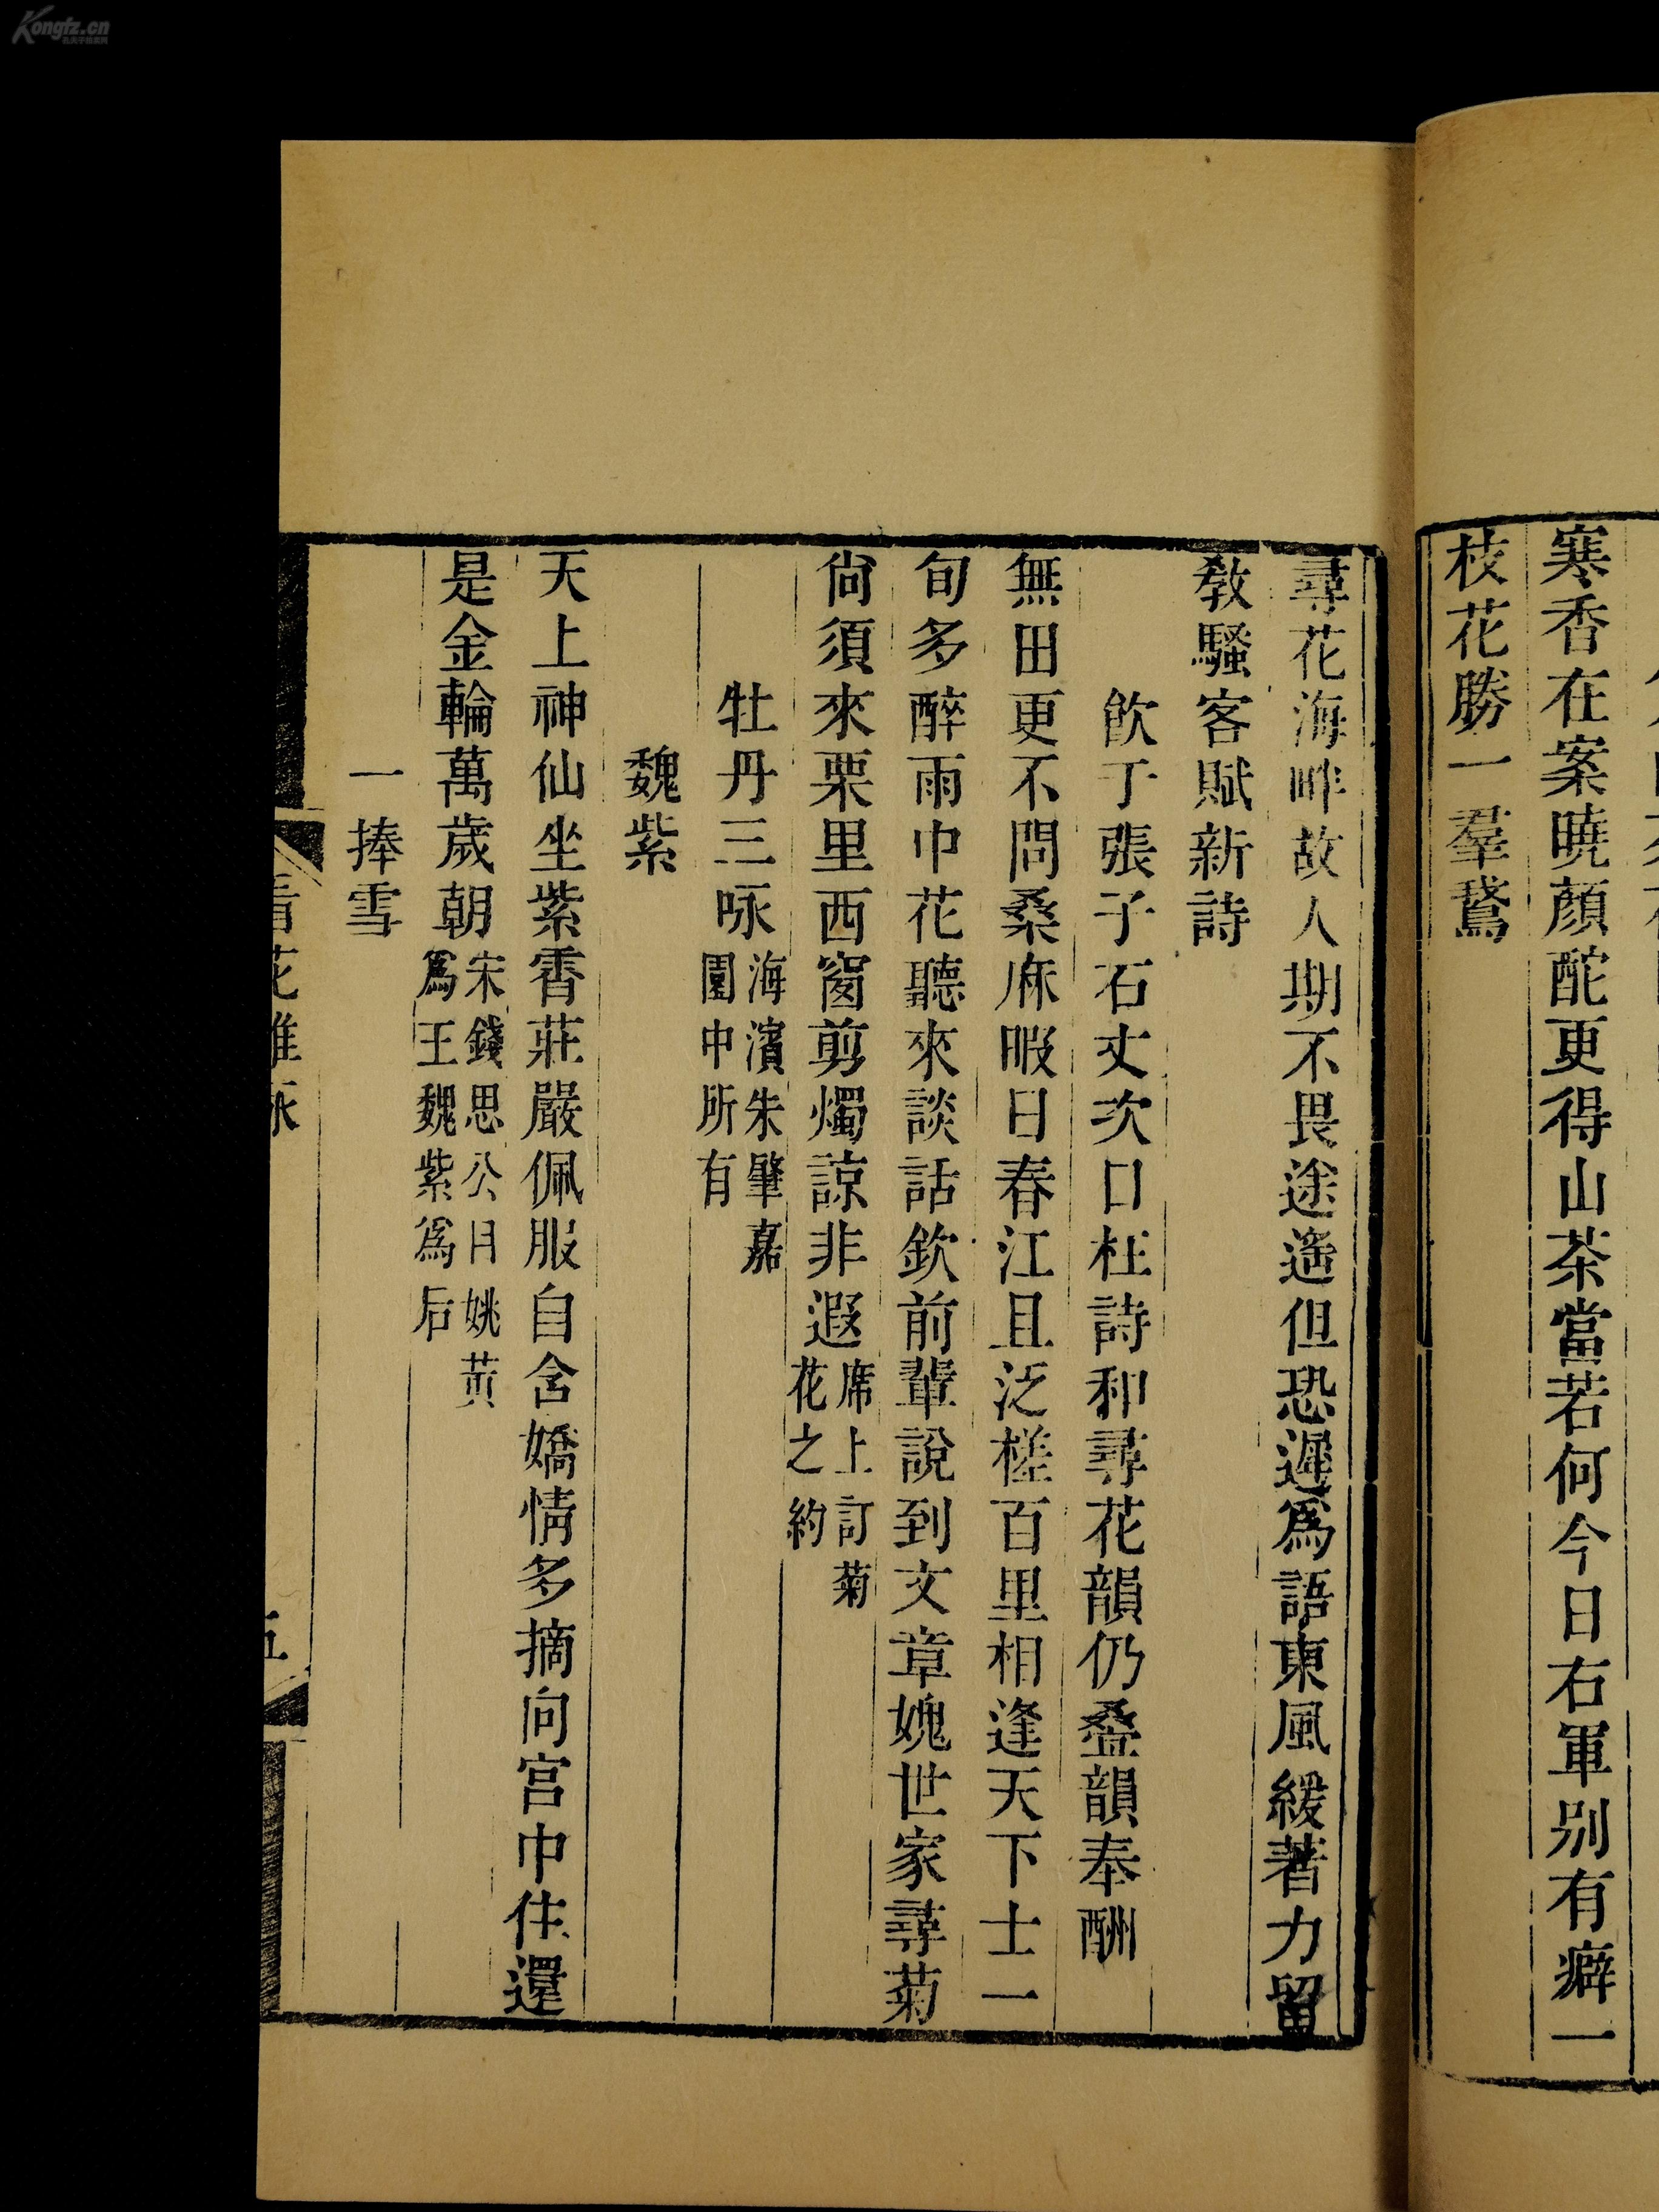 寒香在案曉顏酡更得山茶當若何今日右軍別有癖一
枝花勝一羣鵞
尋花海畔故人期不畏途遙但恐遲為語東風緩著力留
教騷客賦新詩
飲于張子石丈次口枉詩和尋花韻仍叠韻奉酬
無田更不問桑麻暇日春江且泛槎百里相逢天下士一
旬多醉雨巾花聽來談話欽前輩說到文章媿世家尋菊
尙須來栗里西窗剪燭諒非遐席上訂菊
花之約
牡丹三咏海濱朱肇嘉
園中所有
魏紫
天上神仙坐紫霄莊嚴佩服自含嬌情多摘向宮中住還
是金輪萬歲朝宋錢思公曰姚黃
為王魏紫為后
一捧雪
看花雜咏
五
Kongfz.cn